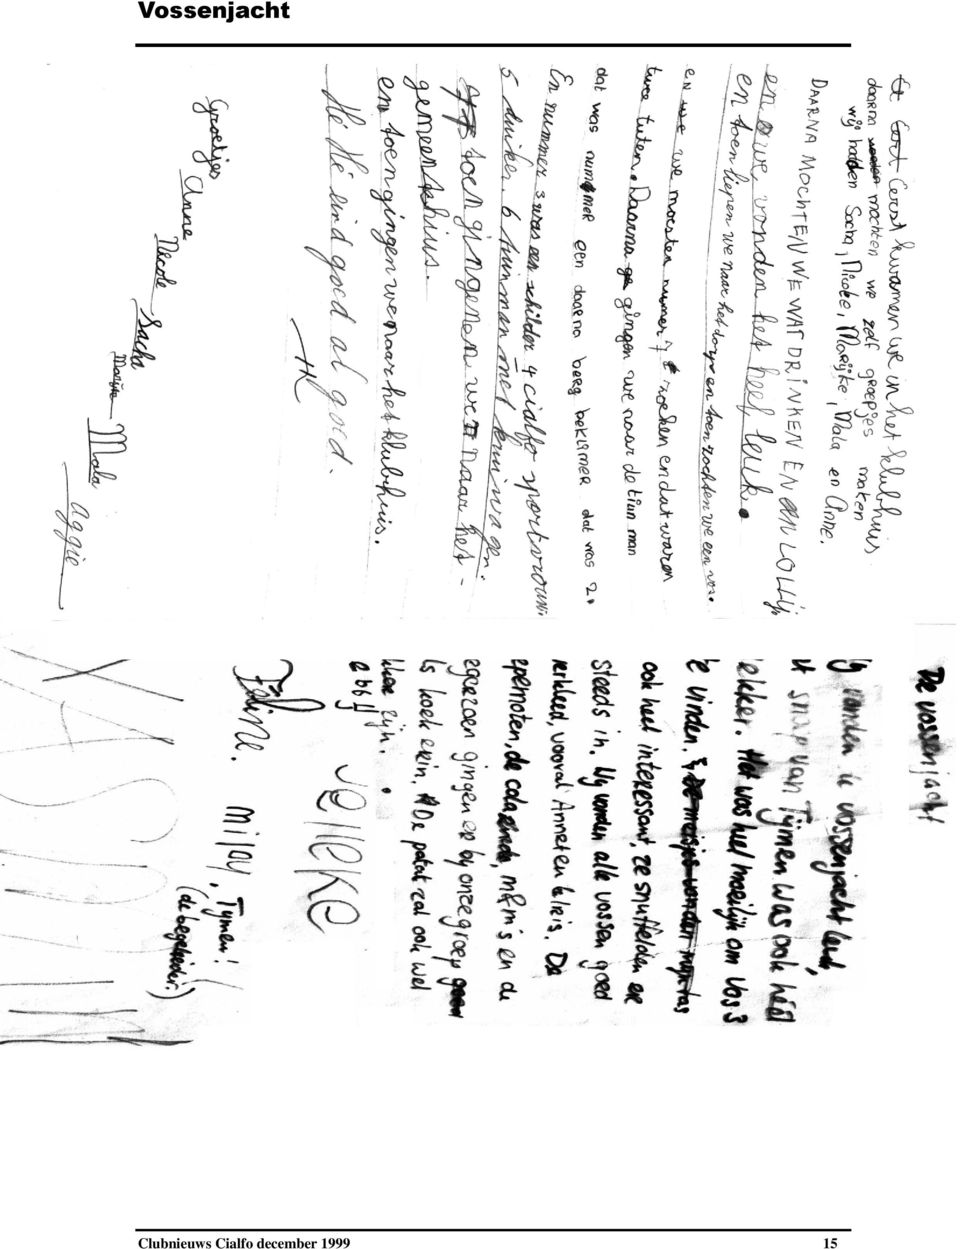 Vossenjacht
Eerst kwamen we in het klubhuis
daarna mochten we zelf groepjes maken
wij hadden Sacha, Nicole, Marijke, Mala en Anne.
DAARNA MOCHTEN WE WAT DRINKEN EN EEN LOLLIJ
en we vonden het heel leuk.
en toen liepen we naar het dorp en toen zochten we een vos.
en we moesten numer 7 zoeken en dat waren
twee tuten. Daarna gingen we naar de tiun man
dat was nummer een daarna berg beklimer dat was 2.
En nummer 3 was een schilder 4 cialfo sportvrouw
5 duiker. 6 tuinman met kruiwagen.
toen gingen we naar het-
gemeentehius.
en toen gingen we naar het klubhuis.
Hé Hé eind goed al goed.
Groetjes
Anne
Nicole
Sacha
Marijke
Mala
Aggie
De vossenjacht
vonden de vossenjacht leuk,
snoep van Tijmen was ook héél
lekker. Het was heel moeilijk om vos 3
te vinden.
ook heel interessant, ze snuffelden er
steeds in. Wij vonden alle vossen goed
verkleed, vooral Annet en Iris. De
pepernoten, de cola, m&m's en de
gingen er bij onze groep
als koek erin. De patat zal ook wel
lekker zijn.
abby
Jelleke
Eline.
Miloy.
Tijmen!
(de begeleider.)
Clubnieuws Cialfo december 1999 15